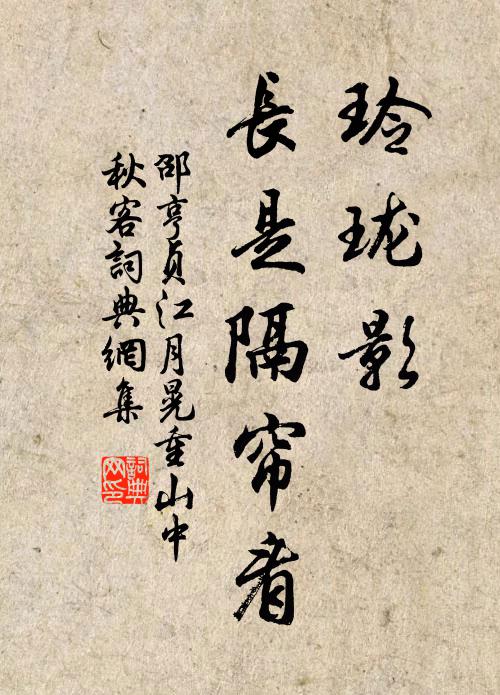 玲珑影
長是隔帘看
邵亨貞江月晃重山中
秋客詞典網集
詞典网印